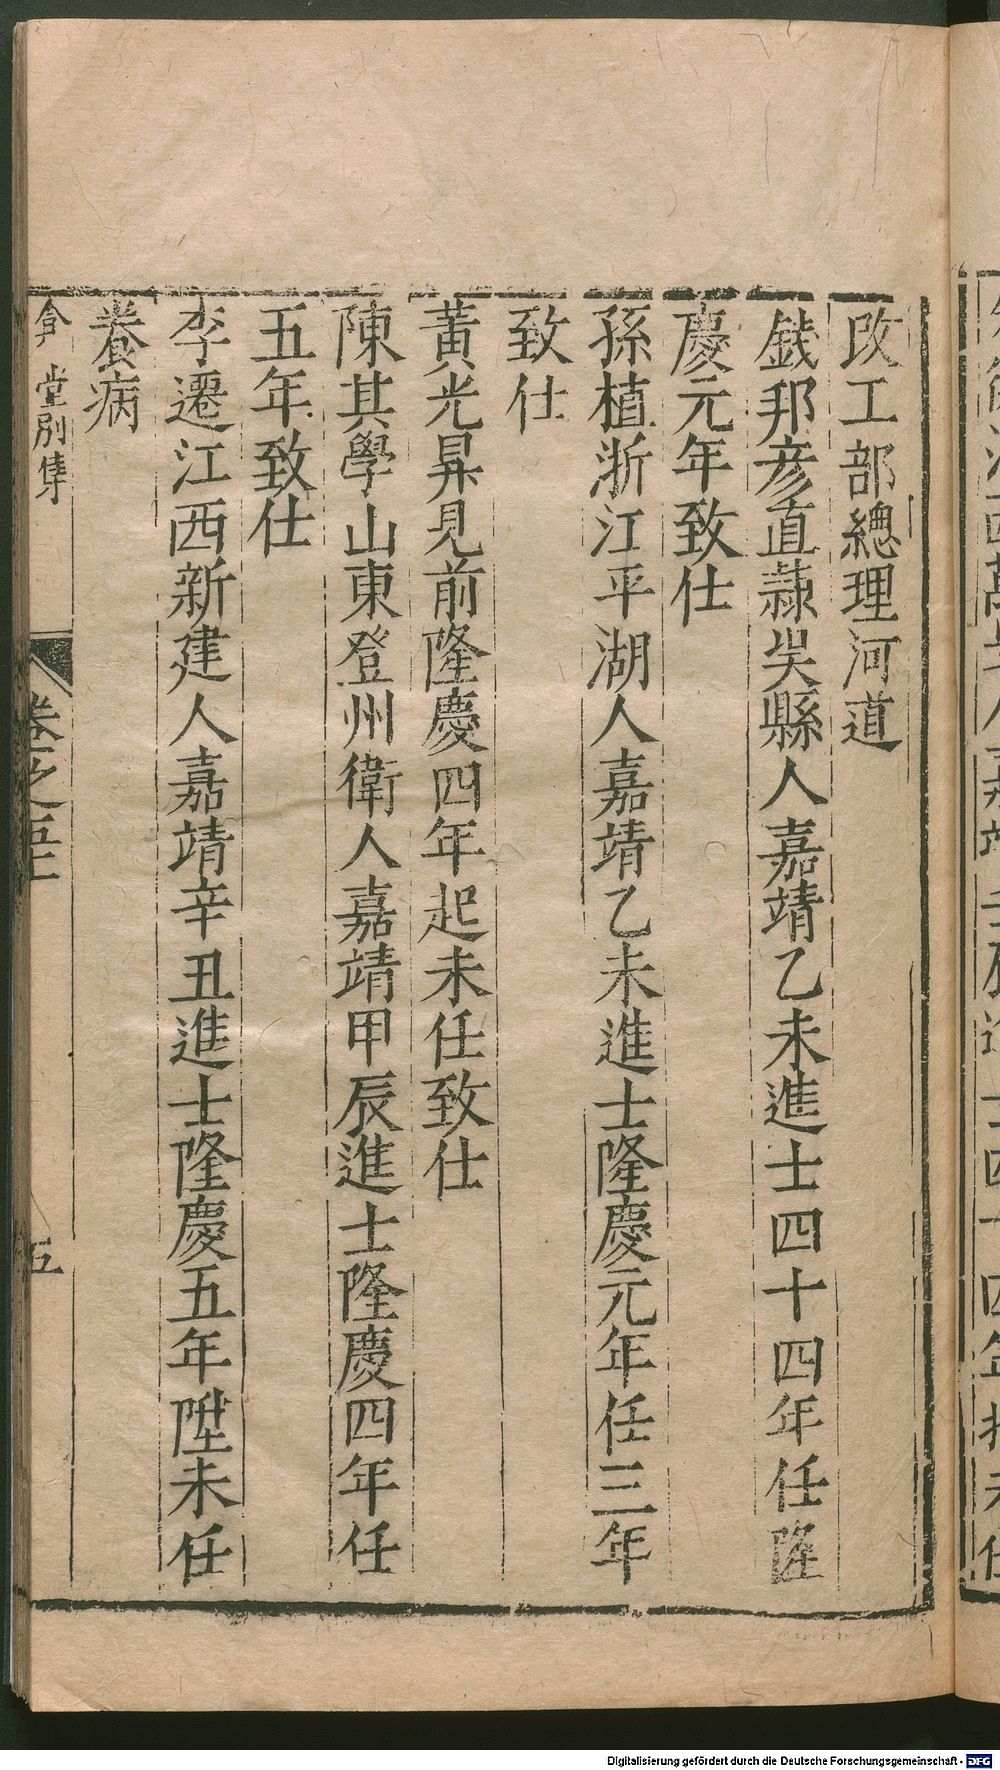 改工部總理河道
錢邦彥直隸吳縣人嘉靖乙未進士四十四年任隆
慶元年致仕
孫植浙江平湖人嘉靖乙未進士隆慶元年任三年
致仕
黃光昇見前隆慶四年起未任致仕
陳其學山東登州衛人嘉靖甲辰進士隆慶四年任
五年致仕
李遷江西新建人嘉靖辛丑進士隆慶五年陞未任
養病
弇堂別集
卷之五十
五
Digitalisierung gefördert durch die Deutsche Forschungsgemeinschaft - DFG